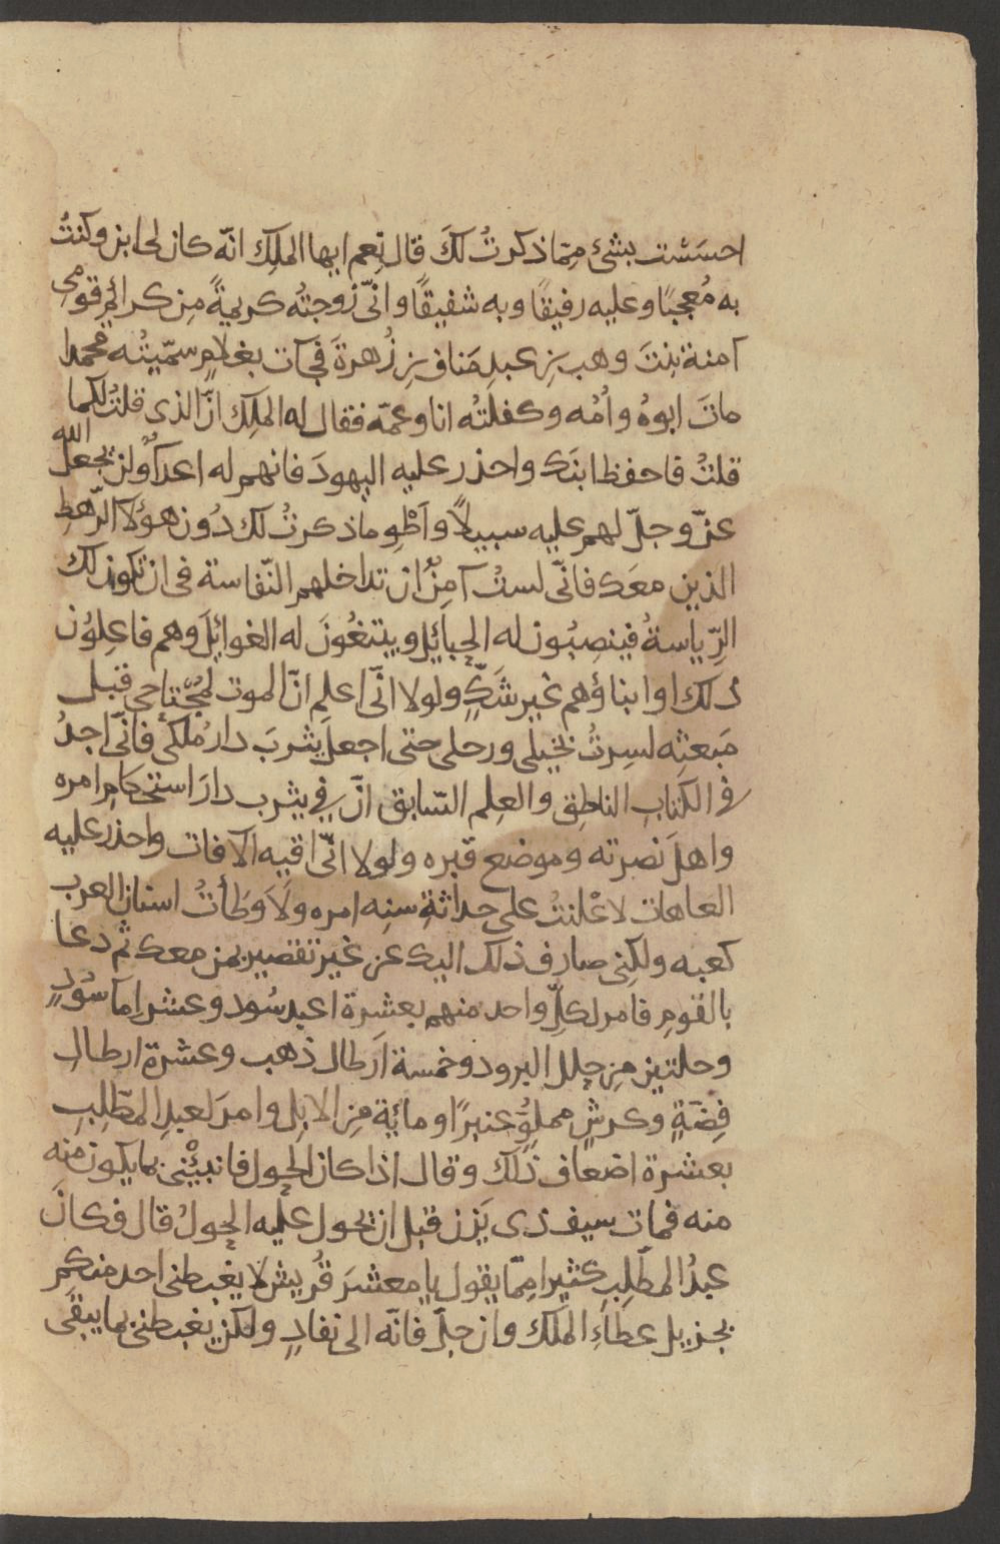 احسَسْت بشئ مِمّا ذكرتُ لكَ قال نعم ايها الملِك انّه كان لى ابن وكنتُ
به مُعجبًا وعليه رفيقًا وبه شفيقًا وانّى زوجتُه كريمةً مِن كرائِمِ قومى
آمنة بِنتَ وهب بنِ عبدِ مَناف بنِ زُهرةَ فجآت بغلامٍ سمّيتُه محمدا
ماتَ ابوهُ وأمُه وكفلتُه انا وعمّه فقال له الملِك انّ الذى قلتُ لكما
قلتُ فاحفظ ابنَك واحذر عليه اليهودَ فانهم له اعدآءٌ ولن يجعل الله
عزّ وجلّ لهم عليه سبيلاً وٱطْوِ ما ذكرتُ لك دُون هؤلآ الرّهطِ
الذين معَك فانّى لستُ آمِنٌ ان تداخلهم النّفاسة فى ان تكون لك
الرِّياسةُ فينصِبُون له الحبائِل ويبتغُونَ له الغوائِلَ وهم فاعِلوُن
ذلك او ابناؤهم غير شَكٍّ ولولا انّى اعلم انّ الموت لمجُتاحى قبل
مَبعثِه لسِرتُ بخيلى ورحلى حتى اجعل يثربَ دارَ مُلكى فانّى اجدُ
فى الكتابِ الناطِقِ والعِلم السّابق انّ فى يثرب دارَ استحكامِ امره
واهلَ نصرته وموضع قبره ولولا انّى اقيه الآفات واحذر عليه
العاهات لاعْلنتُ على حداثةِ سِنِه امره ولاَوَطَأتُ اسنان العرب
كعبه ولكِنى صارِف ذلك اليك عن غير تقصير بمن معك ثم دعا
بالقومِ فامر لكلِّ واحد منهم بعشرة اعبد سُود وعشر امآ سُودٍ
وحلتين مِن حِلل البرود وخمسة اَرطال ذهب وعشرة ارطالِ
فِضّةٍ وكرشٍ مملوٍّ عنبرًا ومائِة مِن الابِل وامرَ لعبدِ المطّلِبِ
بعشرة اضعاف ذلك وقال اذا كان الحول فانبئْنى بما يكون منه
منه فمات سيف ذى يَزن قبل ان يحول عليه الحولُ قال فكانَ
عبدُ المطّلِبِ كثيرا مِمّا يقول يا معشرَ قُريش لا يغبطنى احد منكم
بجزيل عطاءِ الملك وان جلّ فانّه الى نفادٍ ولكن يغبطنى بما يبقَى